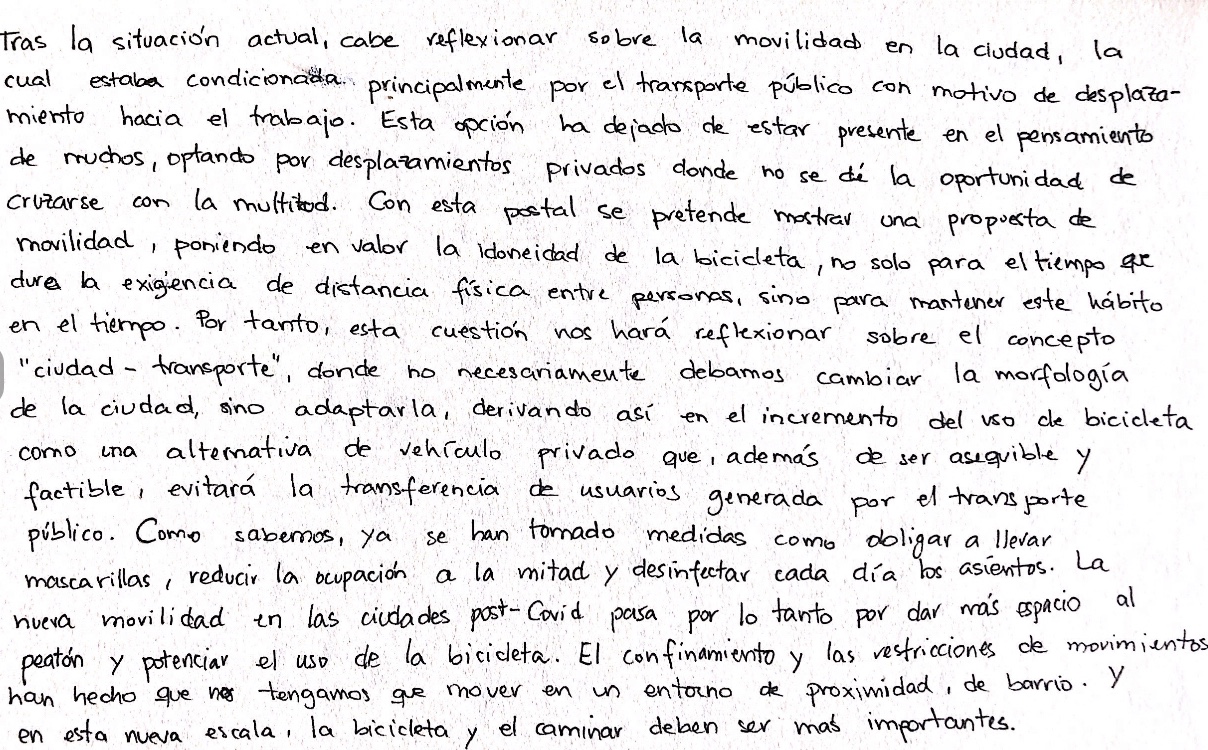 Tras la situación actual, cabe reflexionar sobre la movilidad en la ciudad, la
cual estaba condicionada principalmente por el transporte público con motivo de desplaza-
miento hacia el trabajo. Esta opción ha dejado de estar presente en el pensamiento
de muchos, optando por desplazamientos privados donde no se dé la oportunidad de
cruzarse con la multitud. Con esta postal se pretende mostrar una propuesta de
movilidad, poniendo en valor la idoneidad de la bicicleta, no solo para el tiempo que
dure la exigencia de distancia física entre personas, sino para mantener este hábito
en el tiempo. Por tanto, esta cuestión nos hará reflexionar sobre el concepto
"ciudad - transporte", donde no necesariamente debamos cambiar la morfología
de la ciudad, sino adaptarla, derivando así en el incremento del uso de bicicleta
como una alternativa de vehículo privado que, además de ser asequible y
factible, evitará la transferencia de usuarios generada por el transporte
público. Como sabemos, ya se han tomado medidas como obligar a llevar
mascarillas, reducir la ocupación a la mitad y desinfectar cada día los asientos. La
nueva movilidad en las ciudades post-Covid pasa por lo tanto por dar más espacio al
peatón y potenciar el uso de la bicicleta. El confinamiento y las restricciones de movimientos
han hecho que nos tengamos que mover en un entorno de proximidad, de barrio. Y
en esta nueva escala, la bicicleta y el caminar deben ser más importantes.